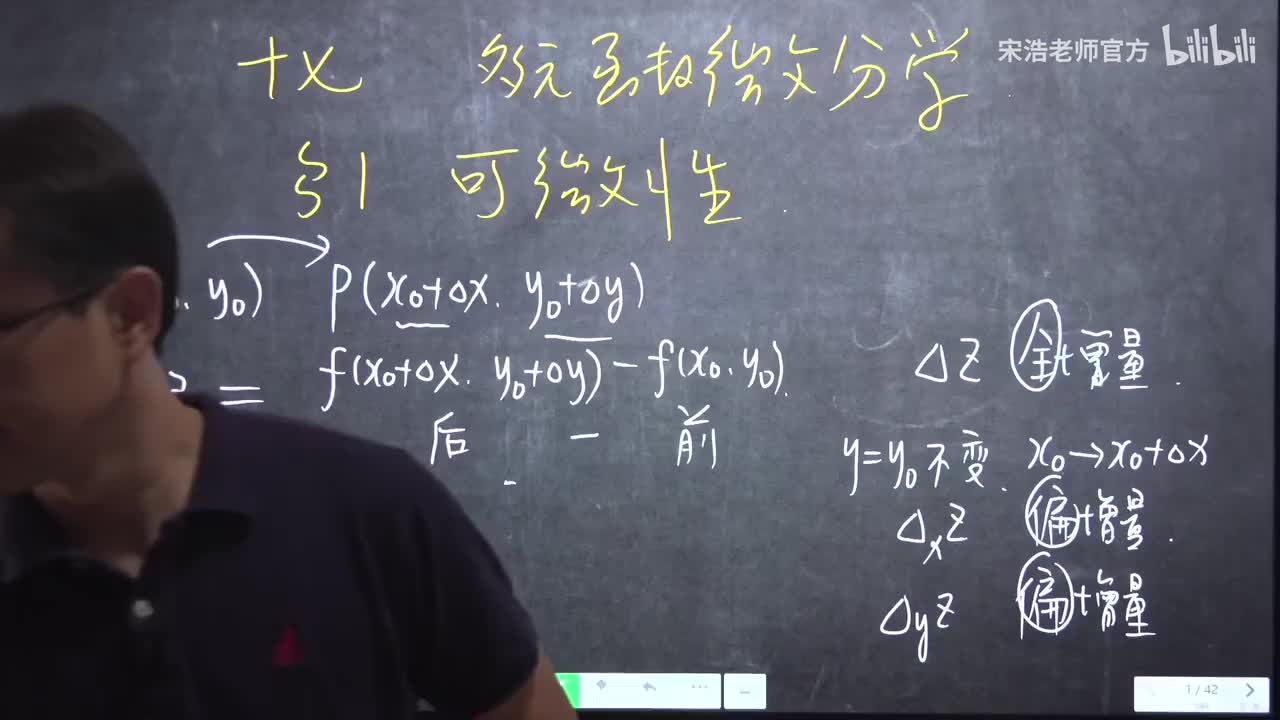 宋浩老师官方 bilibili
十七 多元函数微分学
§1 可微性
y₀) P(x₀+Δx, y₀+Δy)
= f(x₀+Δx, y₀+Δy) - f(x₀, y₀).
后 - 前
ΔZ 全增量.
y=y₀不变. x₀→x₀+Δx
ΔₓZ 偏增量.
ΔyZ 偏增量
1/42